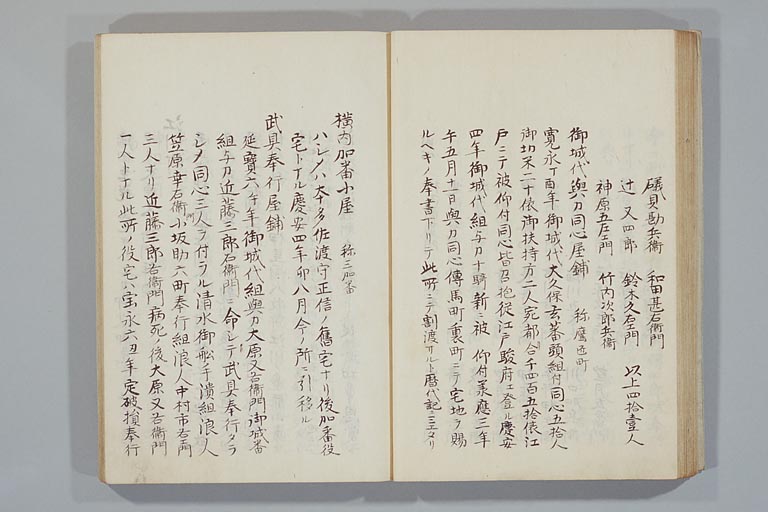 礒貝勘兵衛 和田甚右衛門
辻 又四郎 鈴木久左衛門 以上四拾壹人
神原五左衛門 竹内次郎兵衛
御城代與力同心屋鋪 称鷹匠町
寛永丁酉年御城代大久保玄蕃頭組付同心五拾人
御切米二十俵御扶持方二人宛都合千四百五拾俵江
戸ニテ被仰付同心皆召抱従江戸駿府ニ登ル慶安
四年御城代組与力十騎新ニ被 仰付美應三年
午五月十一日與力同心傳馬町裏町ニテ宅地ヲ賜
ルヘキノ奉書下リテ此所ニテ割渡サルト暦代記ニミエタリ
構内加番小屋 称三加番
ハシメハ大キ多佐渡守正信ノ舊宅ナリ後加番役
宅トナル慶安四年卯八月今ノ所ニ引移ル
武具奉行屋鋪
延寶六午年御城代組與力大原又右衛門御城番
組与力近藤三郎右衛門ニ命シテ武具奉行タラ
シメ同心三人ヲ付ラル清水御舩手潰組浪人
笠原幸右衛門小坂助六町奉行組浪人中村市右衛門
三人ナリ近藤三郎右衛門病死ノ後大原又右衛門
一人トナル此所ノ役宅ハ宝永六丑年定破損奉行